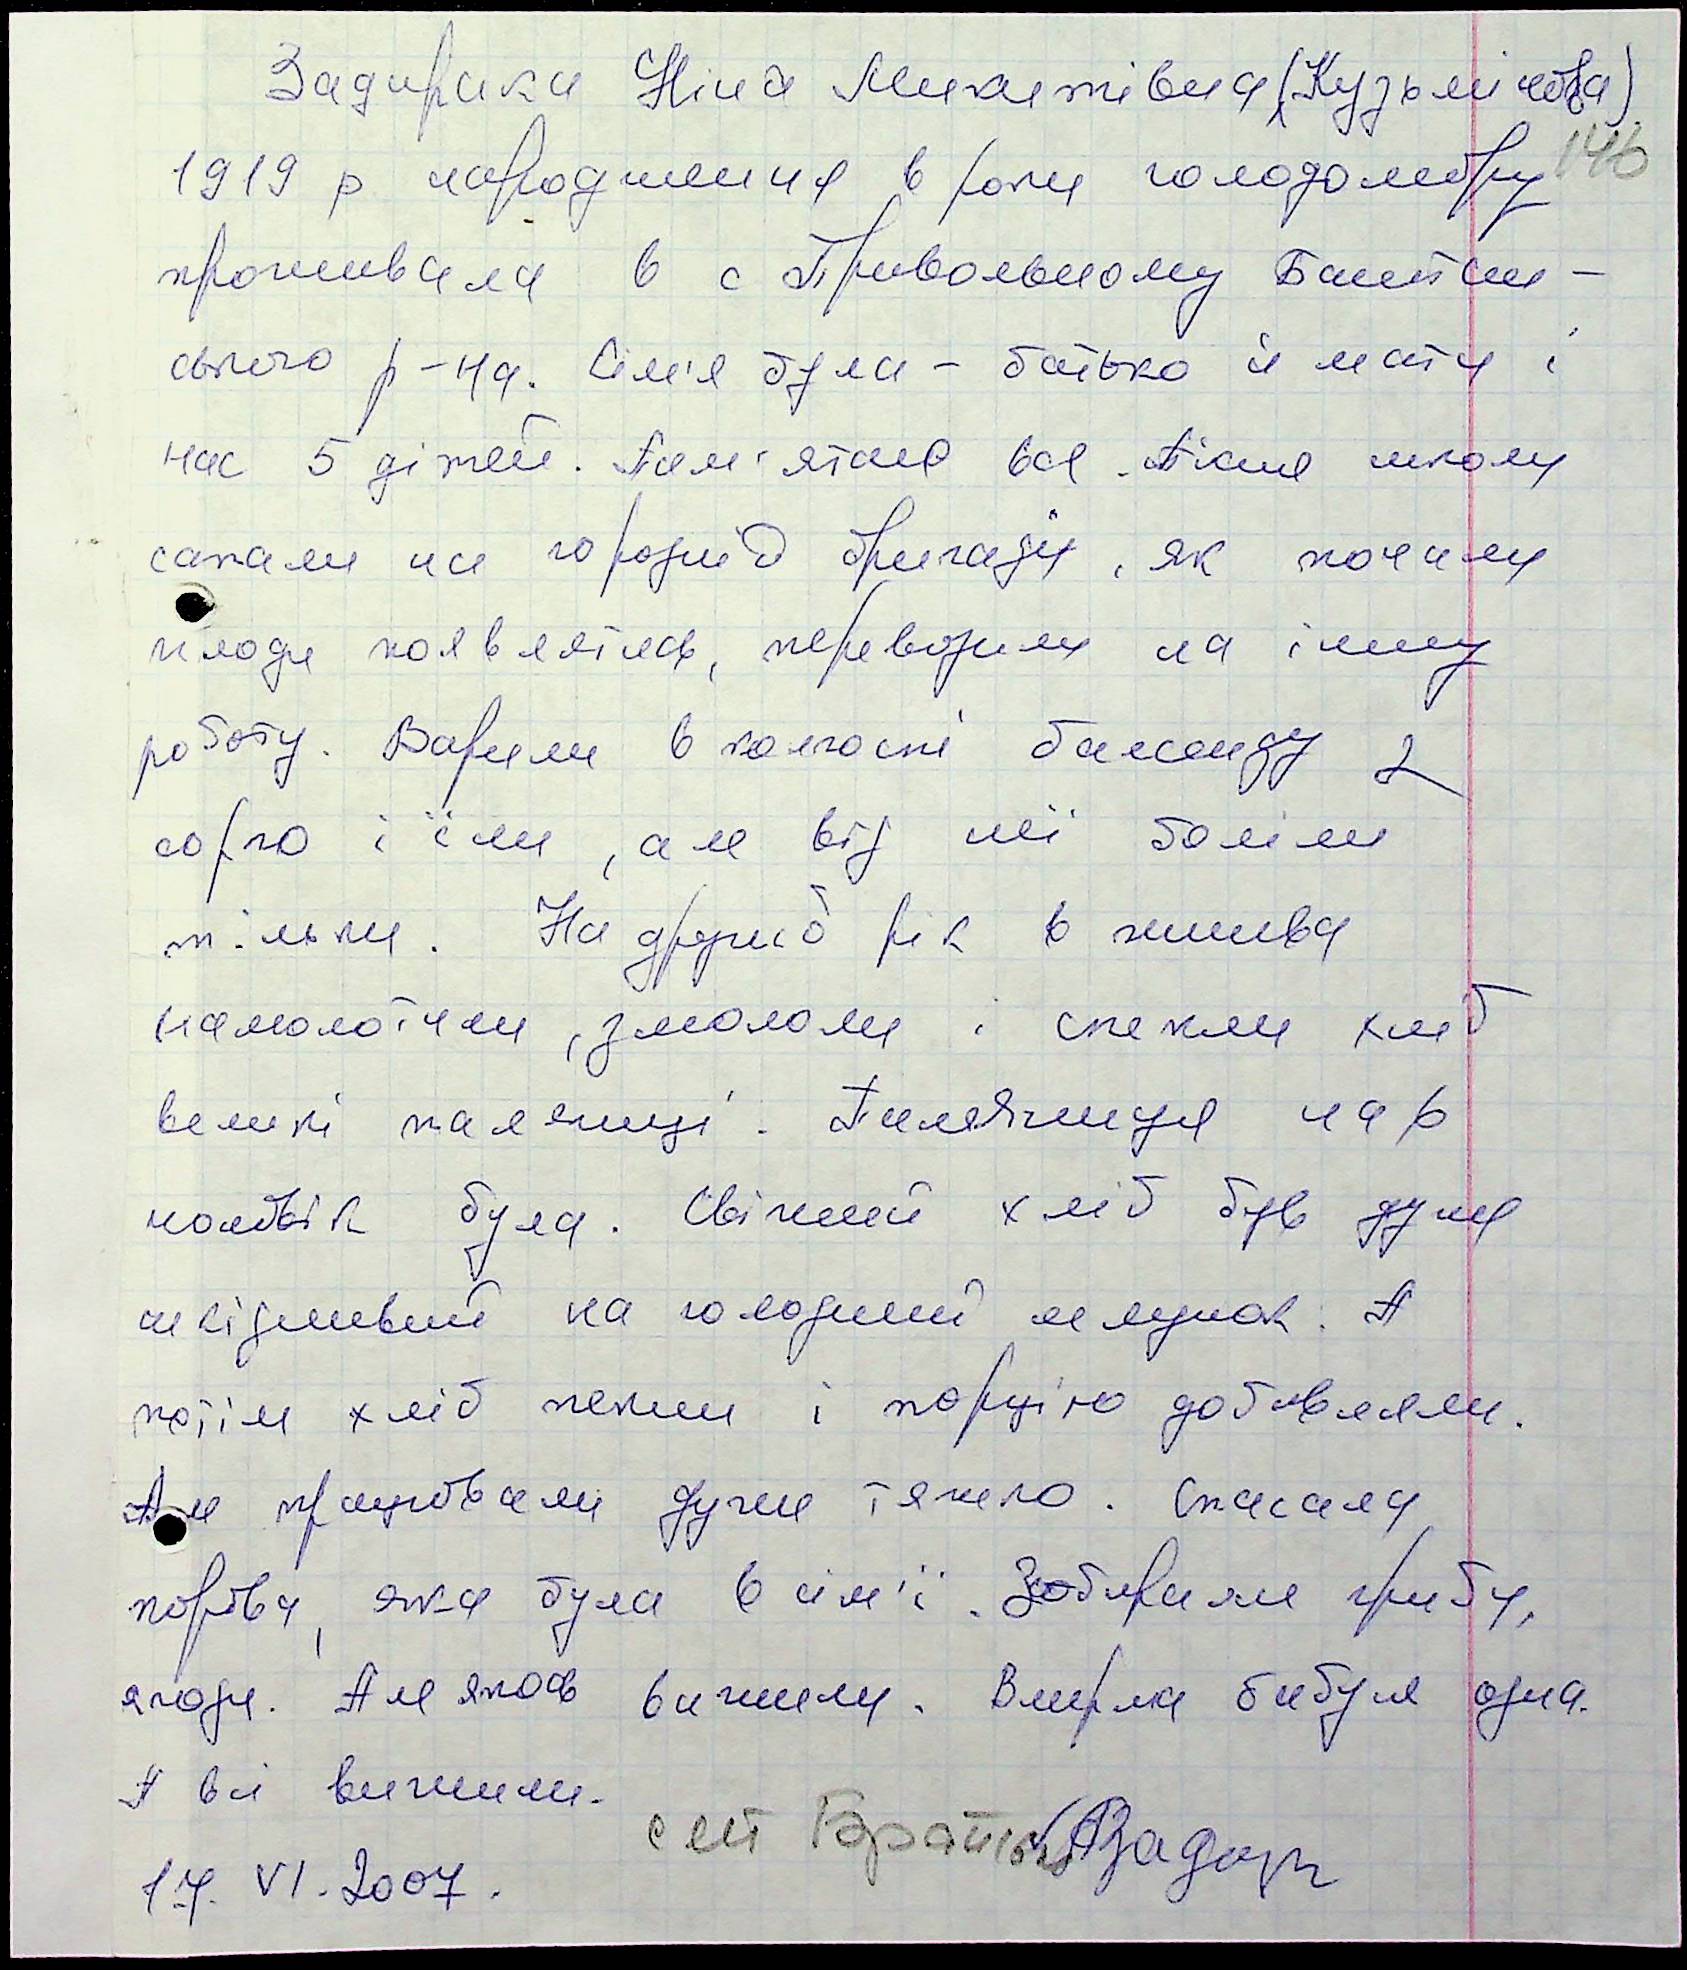 Задирака Ніна Микитівна (Кузьмічова)
146
1919 р народження в роки голодомору
проживала в с Привольному Баштан-
ського р-на. Сім'я була - батько й мати і
нас 5 дітей. Пам'ятаю все. Після школи
сапали на городній бригаді, як почали
плоди появлятись, переводили на іншу
роботу. Варили в колгоспі баланду з
сорго і їли, але від неї боліли
тільки. На другий рік в жнива
намолотили, змололи і спекли хліб
великі паляниці. Паляниця на р
чоловік була. Свіжий хліб був дуже
шкідливий на голодний шлунок. А
потім хліб пекли і порцію добавляли.
Але працювали дуже тяжко. Спасала
корова, яка була в сім'ї. Зобирали гриби,
ягоди. Але якось вижили. Вмерла бабуля одна.
А всі вижили.
смт
17. VI. 2007.